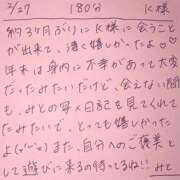 2/27 180分 K様
約3ヶ月ぶりにK様に会うこと
が出来て、凄く嬉しかったよ♡♡
年末は身内に不幸があって大変
だったみたいだけど、会えない間
も、みとの写メ日記を見てくれてた
みたいで、とっても嬉しかった
よ(o´∀`o) また、自分へのご褒美と
して遊びに来るの待ってるね!!みと